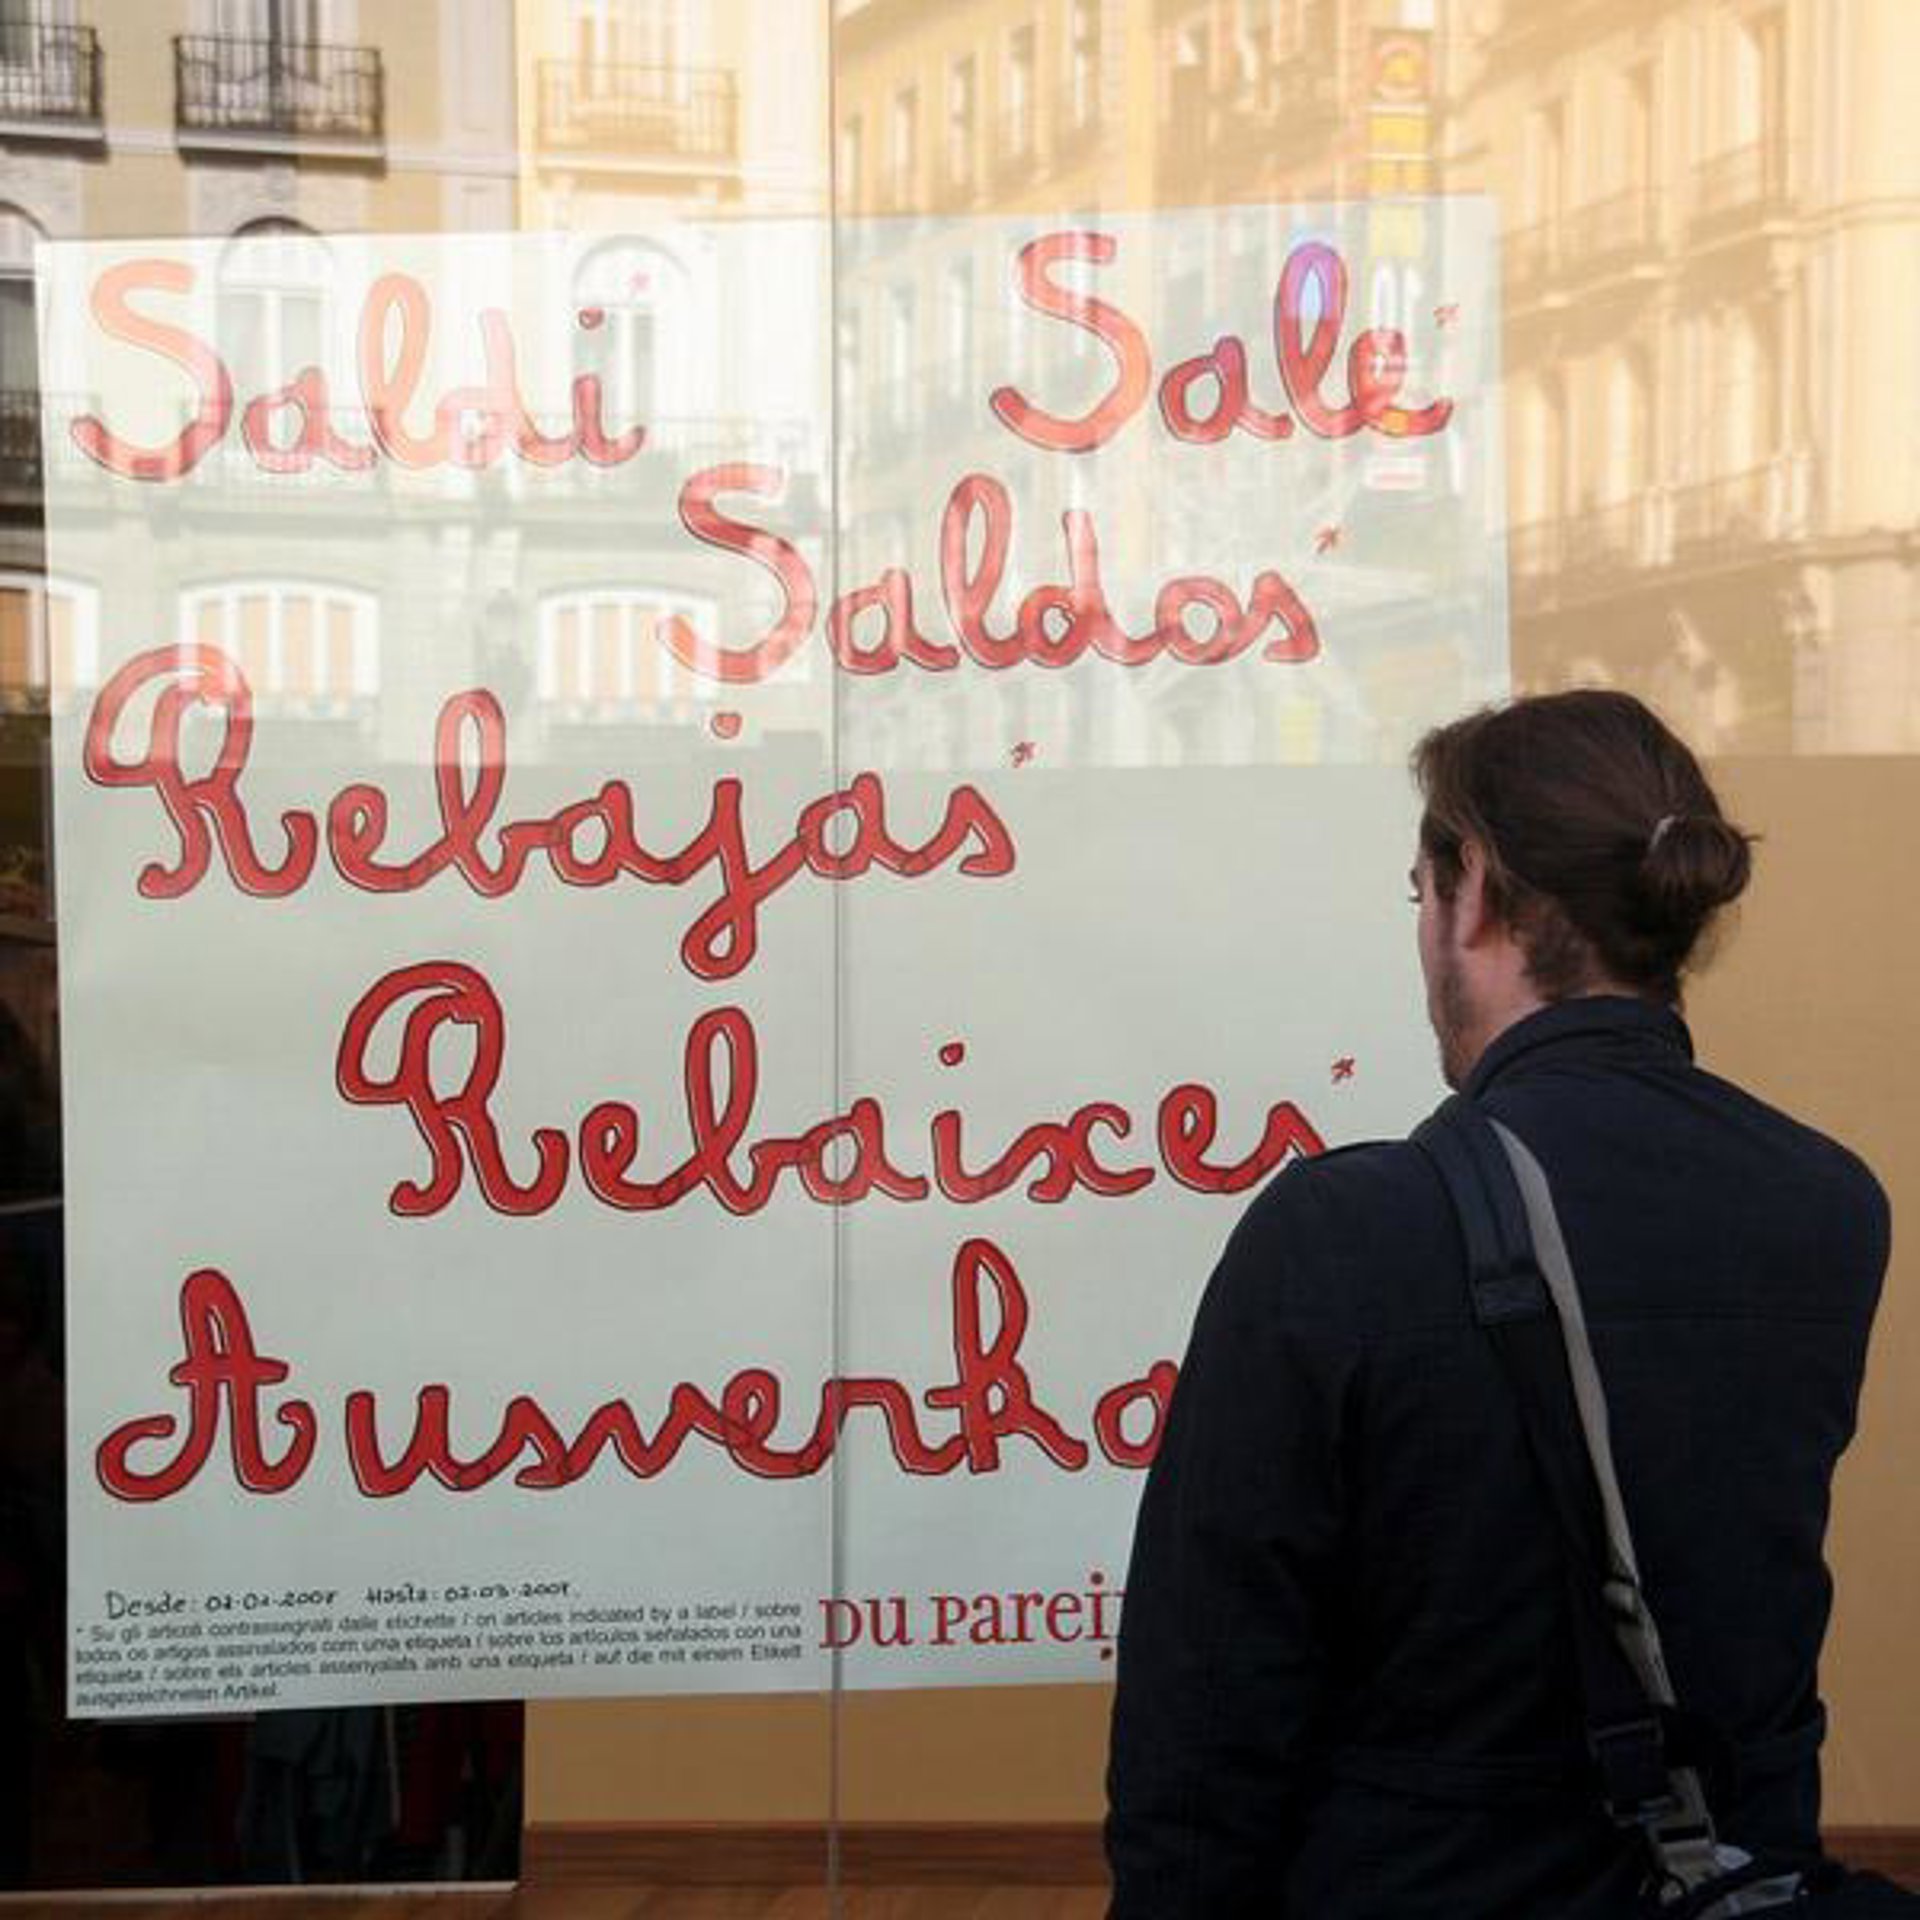 Saldi* Sale*
Saldos*
Rebajas*
Rebaixes*
Ausverka
Desde: 02-01-2008 Hasta: 02-03-2008.
* Su gli articoli contrassegnati dalle etichette / on articles indicated by a label / sobre
todos os artigos assinalados com uma etiqueta / sobre los artículos señalados con una
etiqueta / sobre els articles assenyalats amb una etiqueta / auf die mit einem Etikett
ausgezeichneten Artikel.
DU Parei